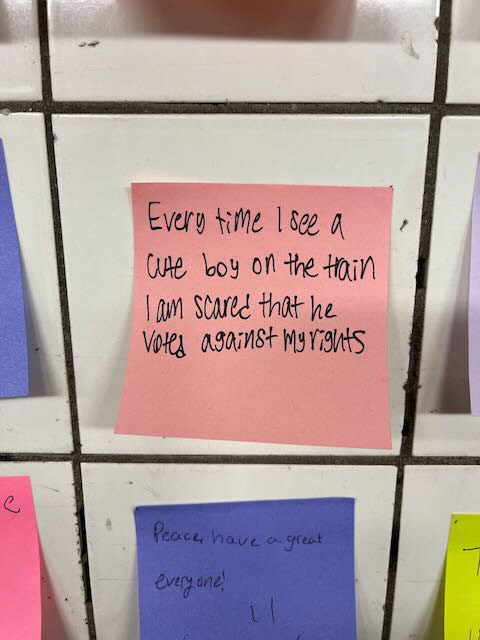 Every time I see a
cute boy on the train
I am scared that he
voted against my rights
e
Peace, have a great
everyone!
T